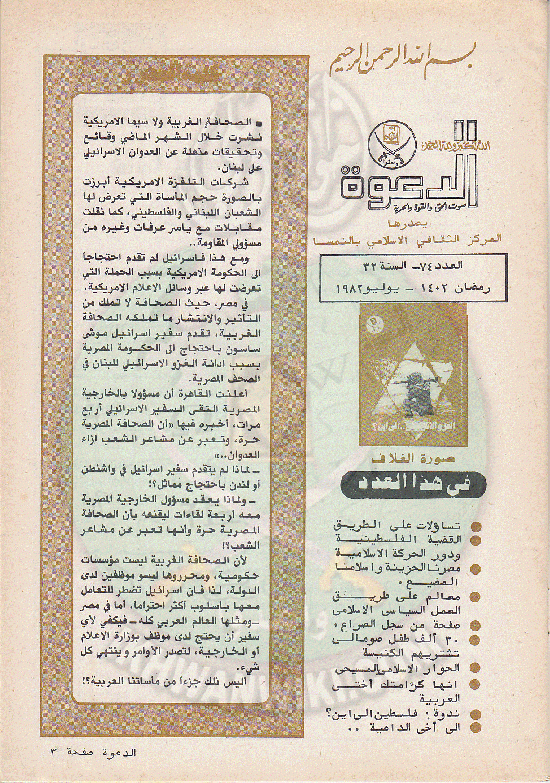 بسم الله الرحمن الرحيم
الدعوة
صوت الحق والقوة والحرية
يصدرها
المركز الثقافي الاسلامي بالنمسا
العدد ٧٤ - السنة ٣٢
رمضان ١٤٠٢ - يوليو ١٩٨٢
صورة الغلاف
في هذا العدد
تساؤلات على الطريق
القضية الفلسطينية
ودور الحركة الاسلامية
مصرنا الحزينة واسلامنا
المضيع .
معالم على طريق
العمل السياسي الاسلامي
صفحة من سجل الصراع .
٣٠ ألف طفل صومالي
تشتريهم الكنيسة
الحوار الاسلامي المسيحي
انها كرامتك أختي
العربية
ندوة : فلسطين الى اين ؟
الى أخي الداعية ..
■ الصحافة الغربية ولا سيما الامريكية
نشرت خلال الشهر الماضي وقائع
وتحقيقات مذهلة عن العدوان الاسرائيلي
على لبنان .
شركات التلفزة الامريكية أبرزت
بالصورة حجم المأساة التي تعرض لها
الشعبان اللبناني والفلسطيني ، كما نقلت
مقابلات مع ياسر عرفات وغيره من
مسؤولي المقاومة ..
ومع هذا فاسرائيل لم تقدم احتجاجا
الى الحكومة الامريكية بسبب الحملة التي
تعرضت لها عبر وسائل الاعلام الامريكية .
في مصر ، حيث الصحافة لا تملك من
التأثير والانتشار ما تملكه الصحافة
الغربية ، تقدم سفير اسرائيل موشى
ساسون باحتجاج الى الحكومة المصرية
بسبب ادانة الغزو الاسرائيلي للبنان في
الصحف المصرية .
أعلنت القاهرة أن مسؤولا بالخارجية
المصرية التقى السفير الاسرائيلي أربع
مرات ، أخبره فيها «أن الصحافة المصرية
حرة ، وتعبر عن مشاعر الشعب ازاء
العدوان ..»
- لماذا لم يتقدم سفير اسرائيل في واشنطن
أو لندن باحتجاج مماثل ؟!
- ولماذا يعقد مسؤول الخارجية المصرية
معه أربعة لقاءات ليقنعه بأن الصحافة
المصرية حرة وأنها تعبر عن مشاعر
الشعب ؟!
لأن الصحافة الغربية ليست مؤسسات
حكومية ، ومحرروها ليسو موظفين لدى
الدولة ، لذا فإن اسرائيل تضطر للتعامل
معها بأسلوب أكثر احتراما . أما في مصر
- ومثلها العالم العربي كله - فيكفي لأي
سفير أن يحتج لدى موظف بوزارة الاعلام
أو الخارجية ، لتصدر الأوامر وينتهي كل
شيء .
أليس ذلك جزءا من مأساتنا العربية ؟!
الدعوة صفحة ٣